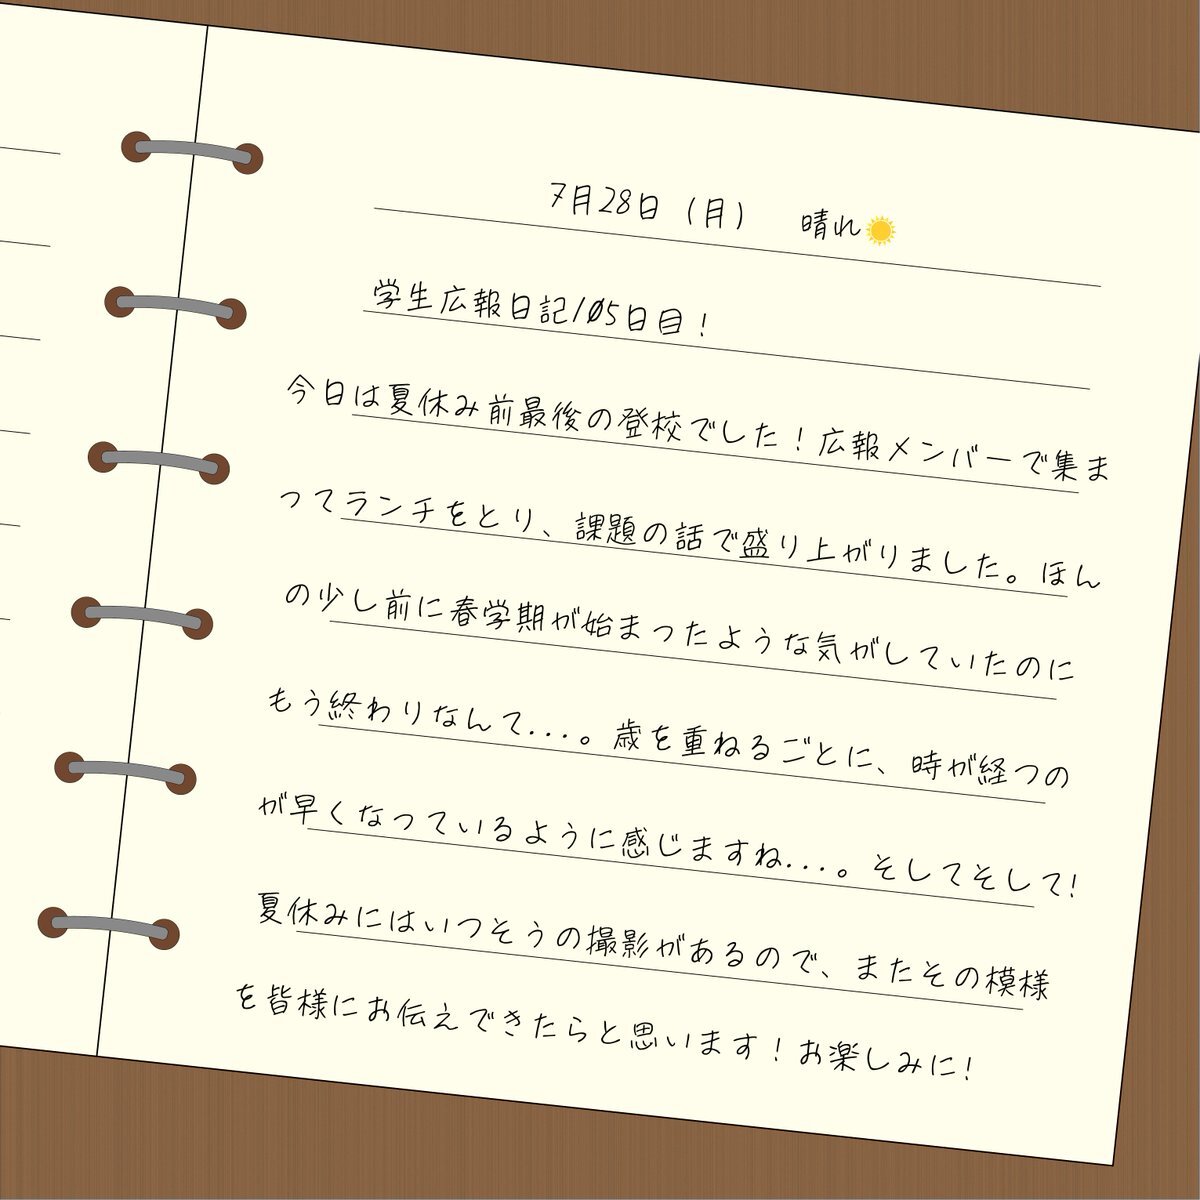 7月28日（月）　晴れ
学生広報日記105日目！
今日は夏休み前最後の登校でした！広報メンバーで集ま
ってランチをとり、課題の話で盛り上がりました。ほん
の少し前に春学期が始まったような気がしていたのに
もう終わりなんて...。歳を重ねるごとに、時が経つの
が早くなっているように感じますね...。そしてそして！
夏休みにはいつそうの撮影があるので、またその模様
を皆様にお伝えできたらと思います！お楽しみに！